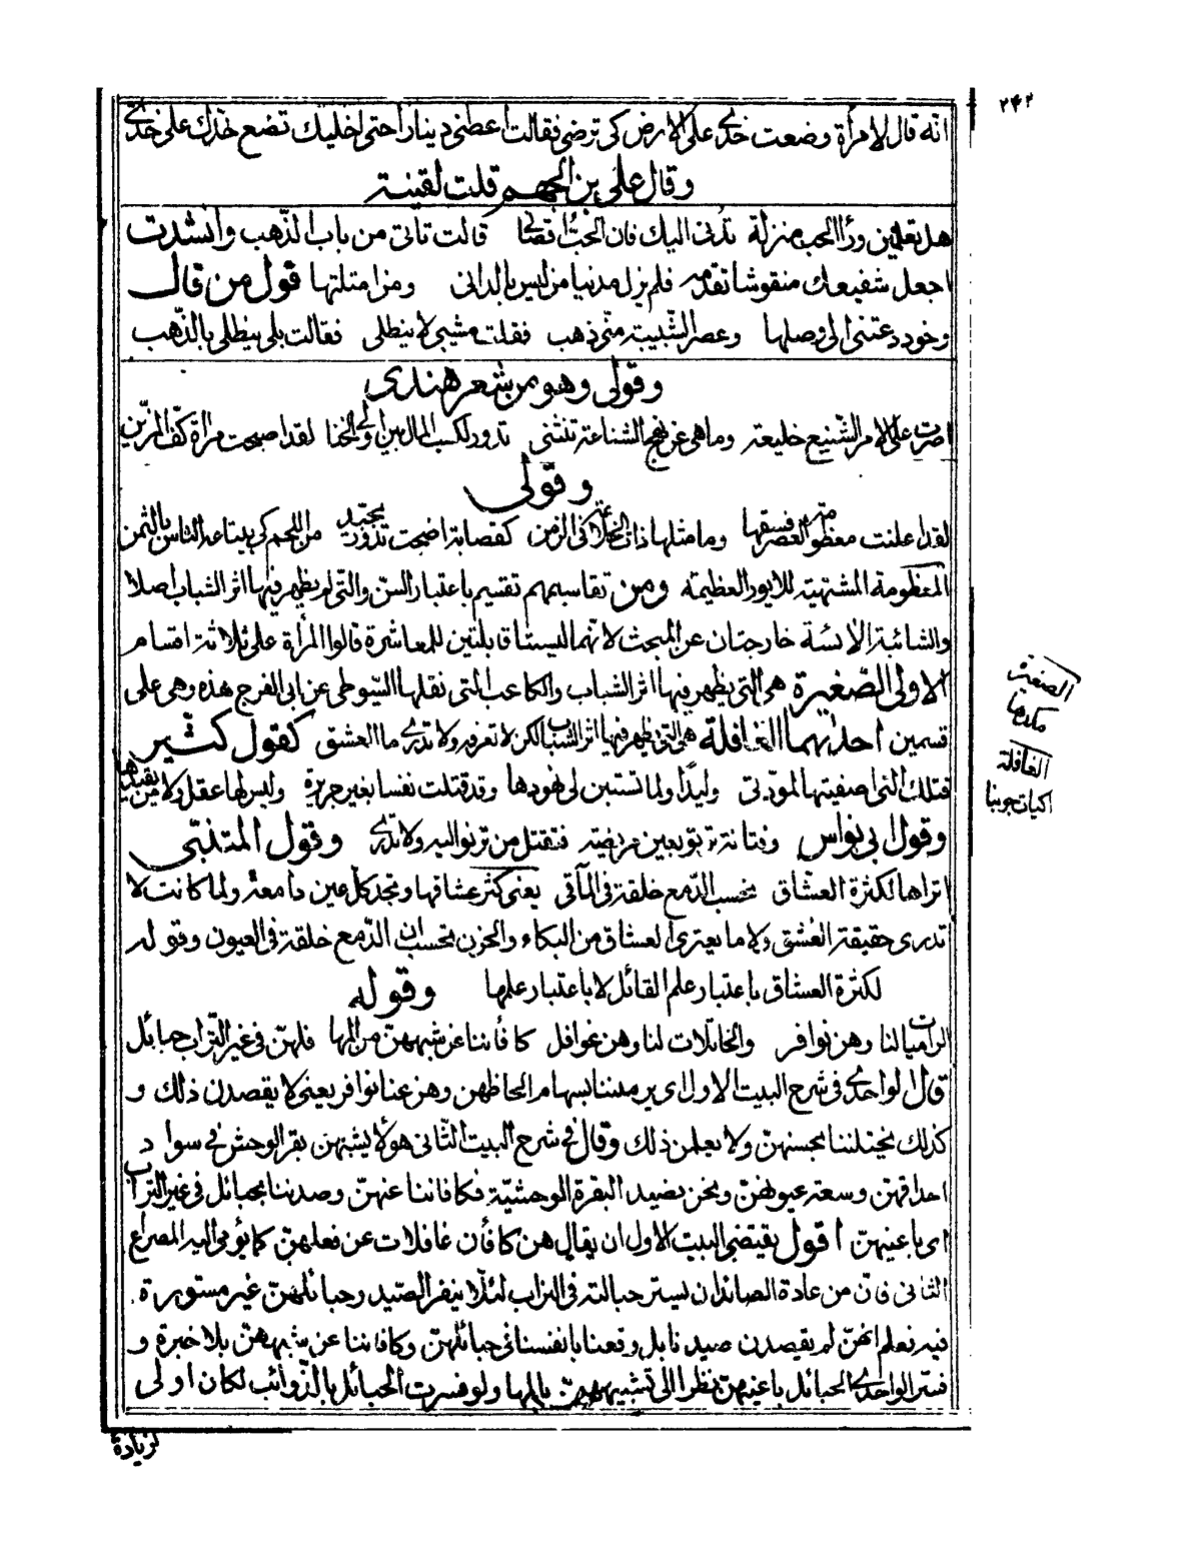 ٢٤٢
انه قال لامرأة وضعت خدي على الارض كى ترضى فقالت اعطنى دينارا حتى اخليك تضع خدك على خدى
وقال على بن الجهم قلت لقينة
هل تعلمين وراء الحب منزلة تدنى اليك فان الحب اقصانى قالت تاتى من باب الذهب وانشدت
اجعل شفيعك منقوشا تقدمه فلم يزل مدنيا من ليس بالدانى ومن امثلتها قول من قال
وخود دعتنى الى وصلها وعصر الشبيبة منى ذهب فقلت مشيبى لا ينطلى فقالت بلى ينطلى بالذهب
وقولى وهو من شعر هندى
اصرت على الامر الشنيع خليعة وما هى عن نهج الشناعة تنثنى تدور لكسب المال بين اولى الخنا لقد اصبحت مرآة كف المزين
وقولى
لقد اعلنت معظومة العصر فسقها وما مثلها ذات الخلاعة فى الزمن كقصابة اضحت تدور بجيد من اللحم كى يبتاعه الناس بالثمن
المعظومة المشتهية للايور العظيمة ومن تقاسيمهم تقسيم باعتبار السن والتى لم يظهر فيها اثر الشباب اصلا
والشائبة الآئسة خارجتان عن المبحث لانهما ليستا قابلتين للمعاشرة قالوا المرأة على ثلاثة اقسام
الاولى الصغيرة هى التى يظهر فيها اثر الشباب والكاعب التى نقلها السيوطى عن ابى الفرج هذه وهى على
قسمين احديهما الغافلة هى التى يظهر فيها اثر الشباب لكن لا تعرفه ولا تدرى ما العشق كقول كثير
قتلك التى اصفيتها المودتى وليدا ولما تستبن لى نهودها وقد قتلت نفسا بغير جريرة وليس لها عقل ولا من يقيدها
وقول ابى نواس وفتانة ترنو بعين مريضة فتقتل من ترنو اليه ولا تدرى وقول المتنبى
اتراها لكثرة العشاق تحسب الدمع خلقة فى المآقى يعنى كثر عشاقها وتجد كل عين دامعة ولما كانت لا
تدرى حقيقة العشق ولا ما يعترى العشاق من البكاء والحزن تحسب ان الدمع خلقة فى العيون وقوله
لكثرة العشاق باعتبار علم القائل لا باعتبار علمها وقوله
الراميات لنا وهن نوافر والخاتلات لنا وهن غوافل كافأننا عن شبههن من المها فلهن فى غير التراب حبائل
قال الواحدى فى شرح البيت الاول اى يرمننا بسهام الحاظهن وهن عنا نوافر يعنى لا يقصدن ذلك و
كذلك يختلننا بحسنهن ولا يعلمن ذلك وقال فى شرح البيت الثانى هؤلا يشبهن بقر الوحش فى سواد
احداقهن وسعة عيونهن ونحن نصيد البقرة الوحشية فكافاننا عنهن وصدننا بحبائل فى غير التراب
اى باعينهن اقول يقتضى البيت الاول ان يقال هن كافأن غافلات عن فعلهن كما يؤمى اليه المصراع
الثانى فان من عادة الصائد ان يستر حبالته فى التراب لئلا ينفر الصيد وحبائلهن غير مستورة
فيه نعلم انهن لم يقصدن صيدنا بل وقعنا بانفسنا فى حبائلهن وكافاننا عن شبههن بلا خبرة و
فسر الواحدى الحبائل باعينهن نظرا الى تشبيههن بالمها ولو فسرت الحبائل بالذوائب لكان اولى
لزيادة
الصغيرة
الغافلة